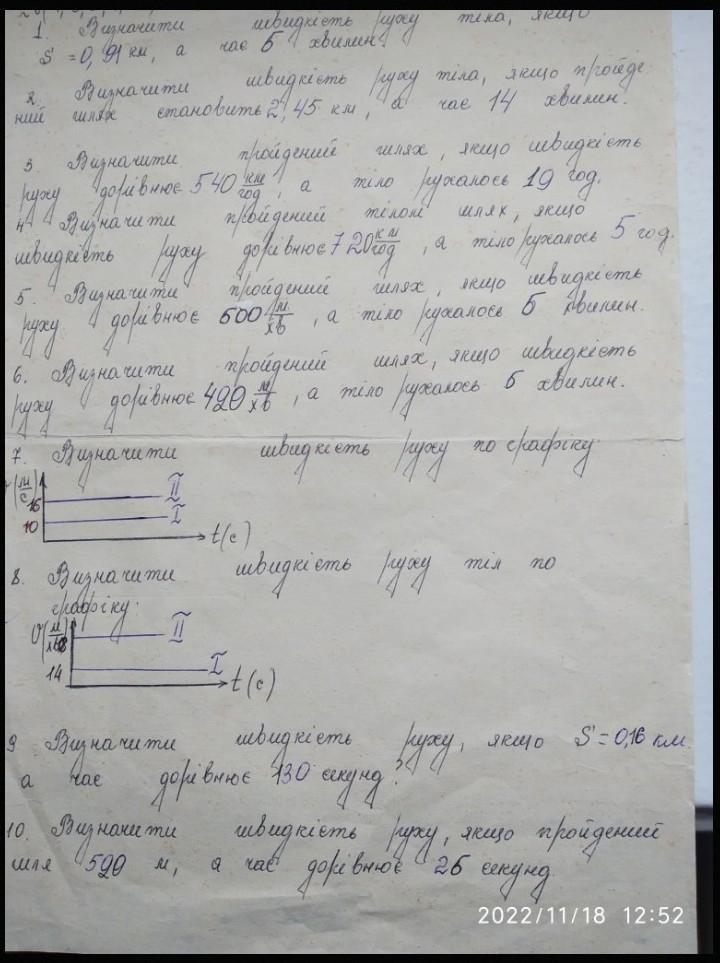 1. Визначити швидкість руху тіла, якщо
S = 0,91 км, а час 5 хвилин.
2. Визначити швидкість руху тіла, якщо пройде
ний шлях становить 2,45 км, а час 14 хвилин.
3 Визначити пройдений шлях, якщо швидкість
руху дорівнює 540 км/год, а тіло рухалось 19 год.
4 Визначити пройдений тілом шлях, якщо
швидкість руху дорівнює 720 км/год, а тіло рухалось 5 год.
5. Визначити пройдений шлях, якщо швидкість
руху дорівнює 600 м/хв, а тіло рухалось 5 хвилин.
6. Визначити пройдений шлях, якщо швидкість
руху дорівнює 420 м/хв, а тіло рухалось 5 хвилин.
7. Визначити швидкість руху по графіку.
(м/с)
II
I
10
t(с)
8. Визначити швидкість руху тіл по
графіку:
II
14
I
t(с)
9 Визначити швидкість руху, якщо S = 0,16 км
а час дорівнює 130 секунд?
10. Визначити швидкість руху, якщо пройдений
шля 590 м, а час дорівнює 25 секунд
2022/11/18 12:52